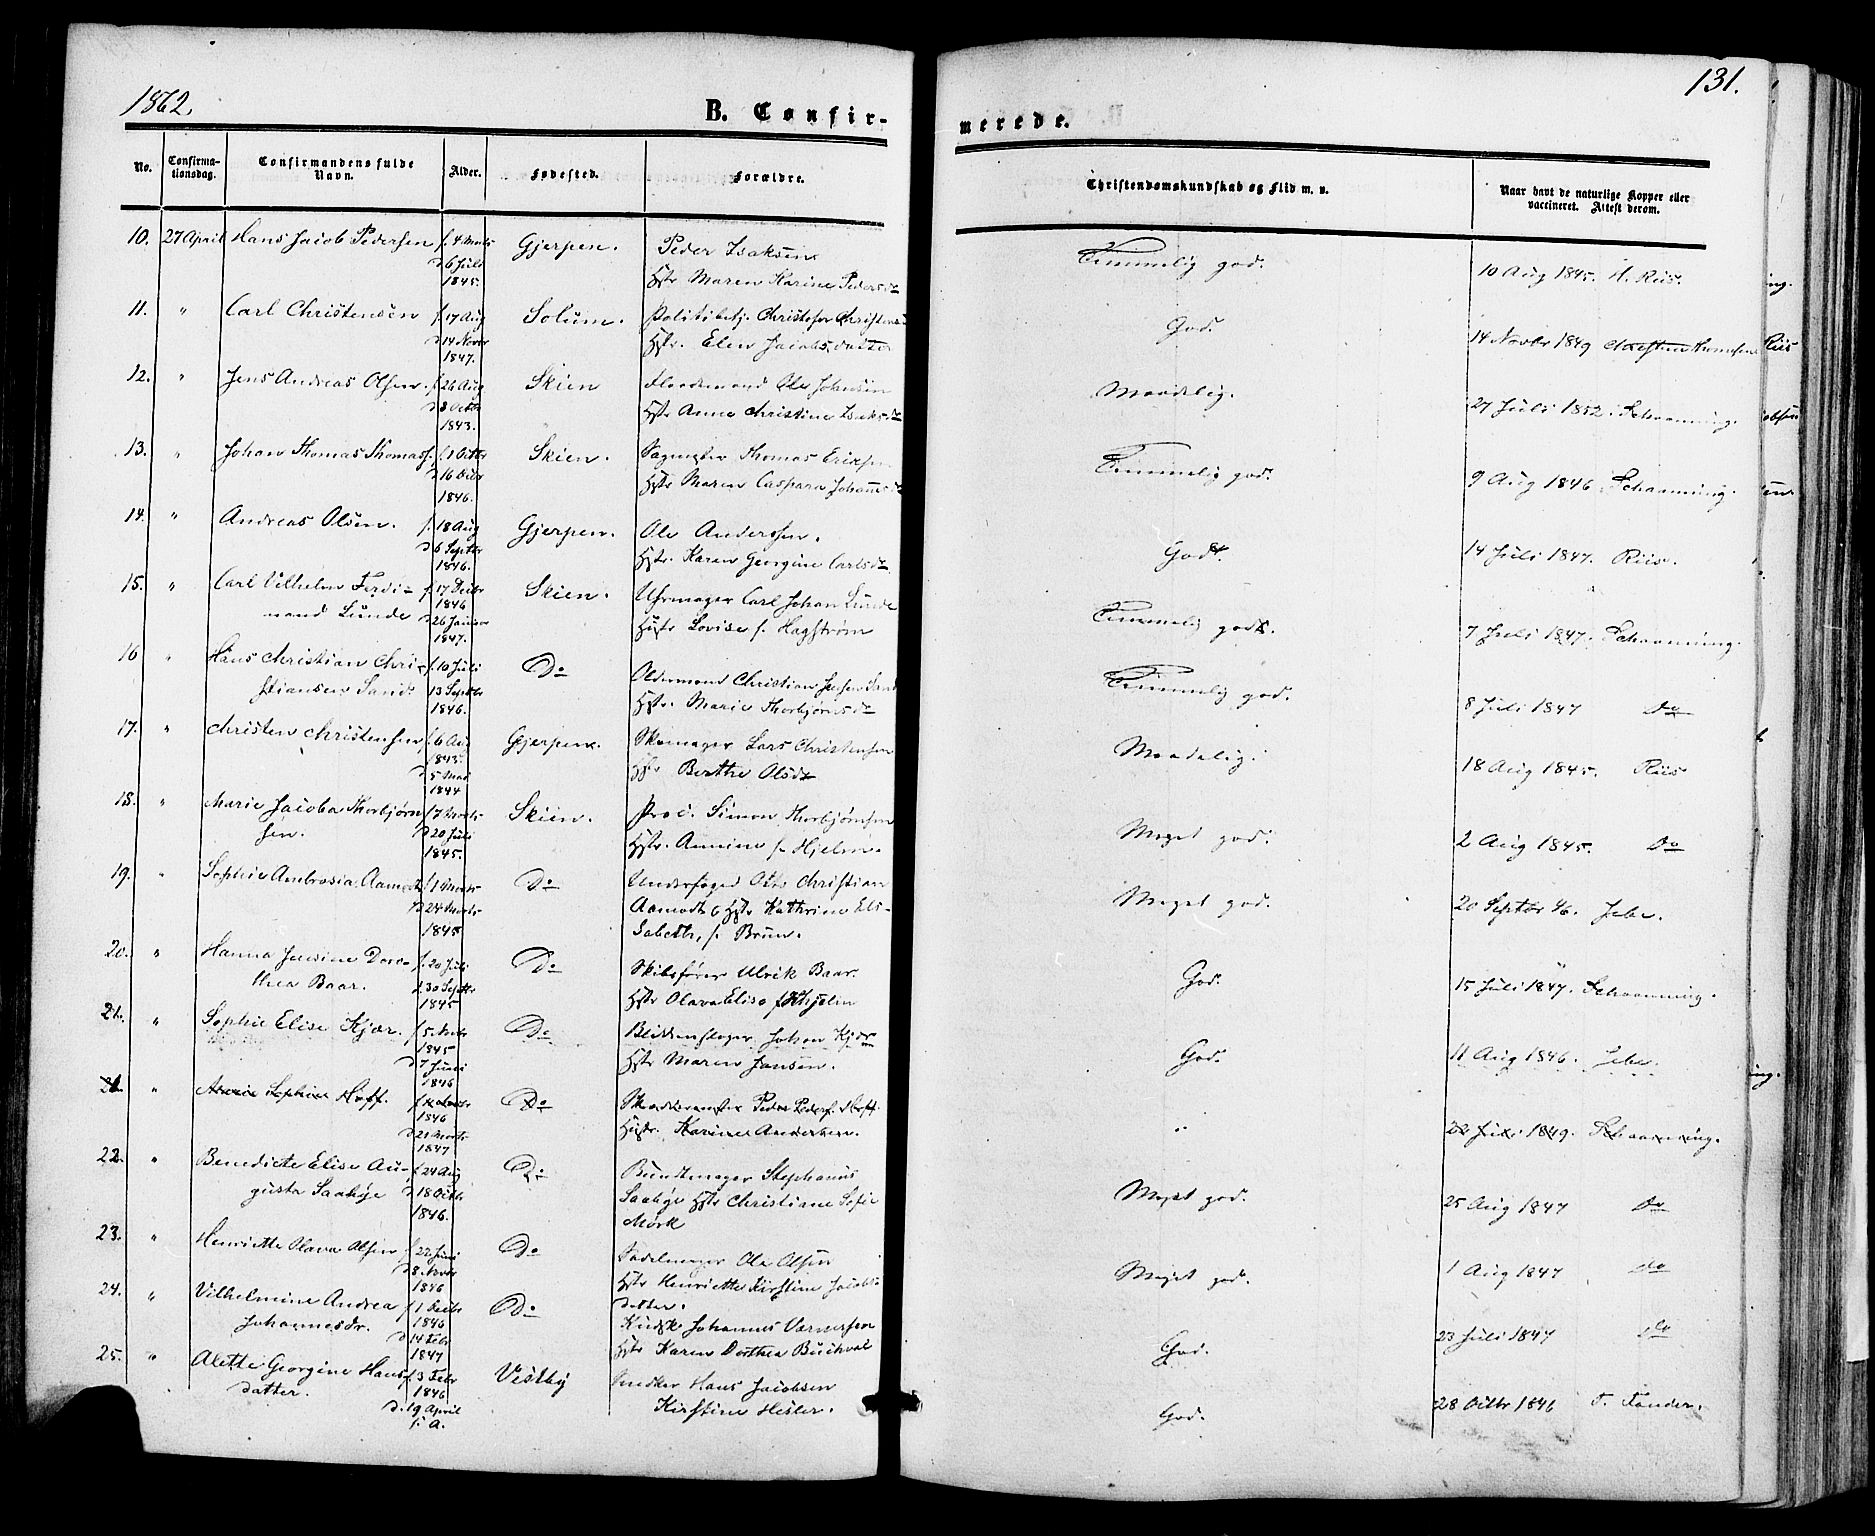 1862.
B. Confir-
No.
Confirma-
tionsdag.
Confirmandens fulde
Navn.
Alder.
Fødested.
Forældre.
10. 27 April Hans Jacob Pedersen f. 4 Marts Gjerpen. Peder Isaksen
d 6 Juli
1845. Hstr Maren Karine Pedersdr
11. " Carl Christensen f. 17 Aug Solum. Politibetj. Christofer Christens
d 14 Novbr
1847. Hstr. Elen Jacobsdatter
12. " Jens Andreas Olsen. f. 26 Aug Skien Ole Johnsen
d 8 Octbr
1843. Hstr Anne Christine Isaksdr
13. " Johan Thomas Thomass. f. 1 Octbr Skien. Sagmester Thomas Eriksen
d 16 Octbr
1846. Hstr Maren Caspara Johannesdr
14. " Andreas Olsen. f. 18 Aug Gjerpen. Ole Anderssen.
d 6 Septbr
1846. Hstr. Karen Georgine Carlsdr
15. " Carl Vilhelm Ferdi- f. 17 Decbr Skien. Uhrmager Carl Johan Lunde
1846
nand Lunde d 26 Januar
1847. Hstr Lovise f. Hagstrøm
16 " Hans Christian Chri- f. 10 Juli Do Oldermand Christian Jensen Sand
stiansen Sand. 13 Septbr
1846. Hstr. Marie Thorbjørnsdr
17. " Christen Christensen f. 6 Aug Gjerpen. Skomager Lars Christensen
1843.
d 5 Mai
1844 Hstr Berthe Olsdr
18. " Marie Jacoba Thorbjørn f. 7 Marts Skien. Proc. Simon Thorbjørnsen
sen. d 20 Juli
1845. Hstr. Annine f. Hjelm.
19. " Sophie Ambrosia Aamodt f. 1 Marts Do Underfoged Otto Christian
d 24 Marts Aamodt & Hstr Kathrine Eli-
1845 sabeth, f. Brun.
20. " Hanna Jensine Doro- f. 20 Juli Do Skibsfører Ulrik Baar
thea Baar. d. 30 Septbr
1845 Hstr Olava Elise f.
21. " Sophie Elise Kjær. f. 5. Do Blikkenslager Johan Kjær
1845
d 7 Juni
1846 Hstr Maren Jansen.
21. " Sophie Hoff. Do Peder Peders. Hoff
1846
d 21 Marts
1847 Hstr. Karine Andersen.
22. " Benedicte Elise Au- f. 24 Aug Do Buntmager Stephanus
gusta Saaby e d 18 Octbr Saabye Hstr Christiane Sofie
1846. Mørk
23. " Henriette Olava Olsen f. 22 Juni Do Sadelmager Ole Olsen
d 8. Novbr
1846 Hstr Henriette Kirstine Jacobs
datter.
24. " Vilhelmine Andrea f. 1 Decbr Do Kudsk Johannes
1846
Johannesdr. d 14 Febr
1847 Hstr Karen Dorthea Buchval
25. " Alette Georgine Hans- f. 3 Febr Vestby Snedker Hans Jacobsen
1846
datter. d. 19 April
s. A. Kirstine Hesler.
131.
merede.
Christendomskundskab og Flid m. v.
Naar havt de naturlige Kopper eller
vaccineret. Attest derom.
Temmelig god. 10 Aug 1845. H. Riis.
God. 14 Novbr 1849 Thomesen
Maadelig. 27 Juli 1852. Schaanning.
Temmelig god. 9 Aug 1846 Schaanning.
Godt. 14 Juli 1847. Riis.
Temmelig godt. 7 Juli 1847. Schaanning.
Temmelig god. 8 Juli 1847 Do
Maadelig. 18 Aug 1845. Riis
Meget god. 2 Aug 1845. Do
Meget god. 20 Septbr 46. Jebe.
God. 15 Juli 1847. Schaanning.
God. 11 Aug 1846. Jebe.
" 22 Juni 1849. Schaanning.
Meget god. 25 Aug 1847 Do
Meget god. 1 Aug 1847 do
God. 23 Juli 1847 do
God. 28 Octbr 1846 T. Tander.